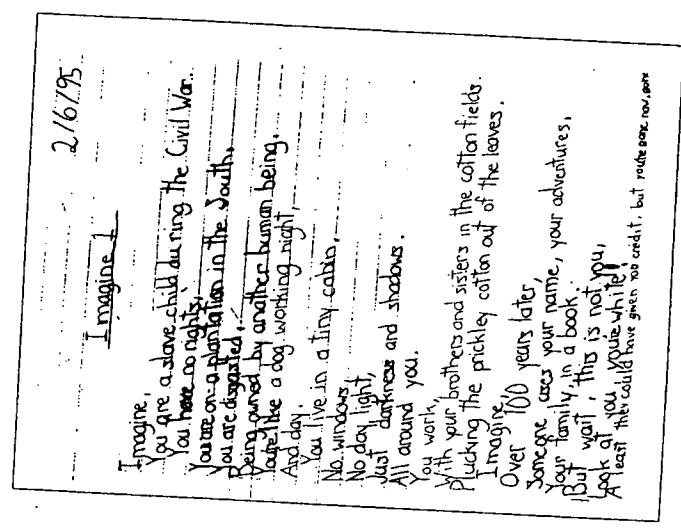 2/6/95
Imagine 1
Imagine,
You are a slave child durring the Civil War.
You have no rights,
You are on a plantation in the South,
You are disgusted,
Being owned by another human being,
You're like a dog working night,
And day.
You live in a tiny cabin,
No windows,
No day light,
Just darkness and shadows.
All around you.
You work,
With your brothers and sisters in the cotton fields.
Plucking the prickley cotton out of the leaves.
Imagine,
Over 100 years later,
Someone uses your name, your adventures,
Your family, in a book.
But wait, this is not you,
Look at you you're white!
At least they could have given you credit, but you're gone now, gone